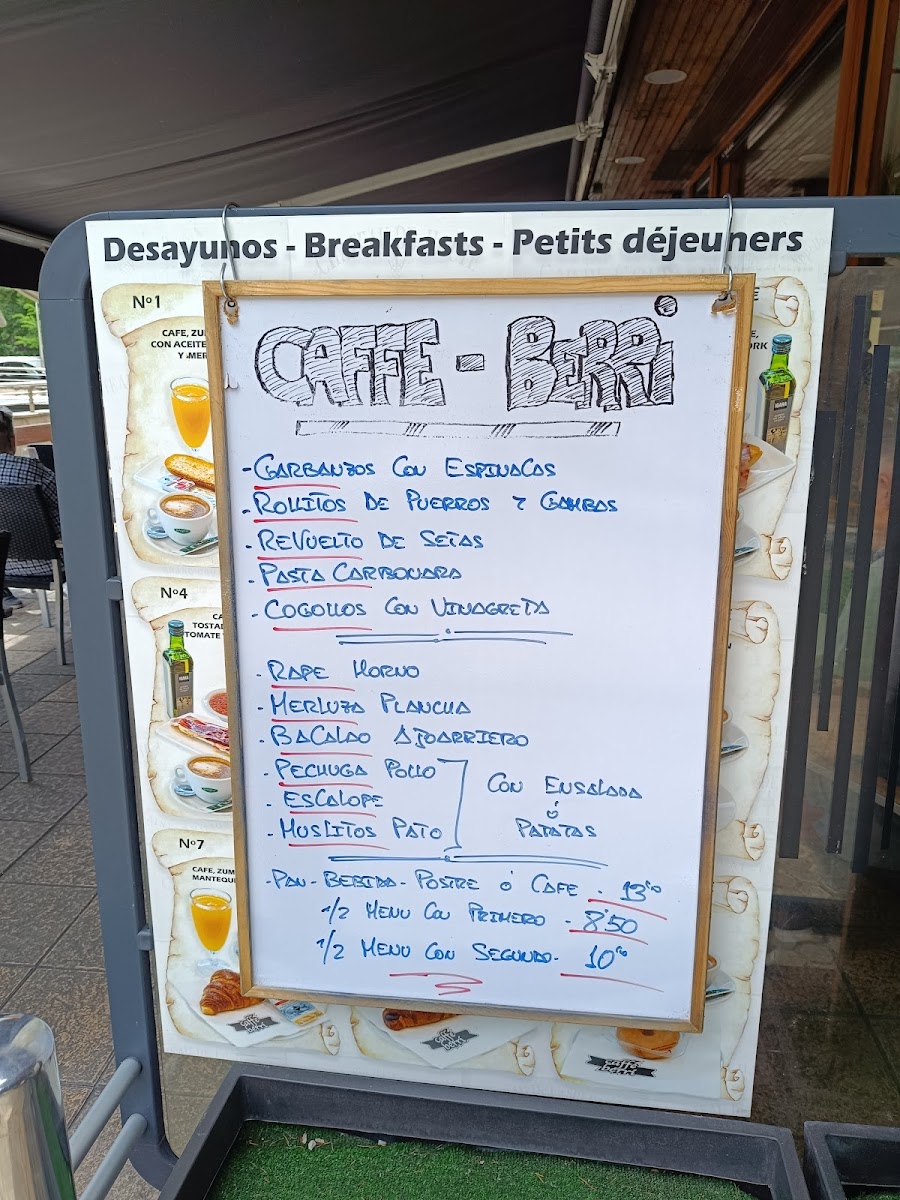 Desayunos - Breakfasts - Petits déjeuners
Nº1
CAFE, ZU
CON ACEITE
Y MER
ORK
CAFFE - BERRi
- GARBANZOS CON ESPINACAS
- ROLLITOS DE PUERROS Y GAMBAS
- REVUELTO DE SETAS
- PASTA CARBONARA
- COGOLLOS CON VINAGRETA
- RAPE HORNO
- MERLUZA PLANCHA
- BACALAO AJOARRIERO
- PECHUGA POLLO
- ESCALOPE
- MUSLITOS PATO
CON ENSALADA
ó
PATATAS
- PAN - BEBIDA - POSTRE ó CAFE - 13'00
1/2 MENU CON PRIMERO - 8'50
1/2 MENU CON SEGUNDO - 10'00
Nº4
CA
TOSTAD
TOMATE
Nº7
CAFE, ZUM
MANTEQU
caffe berri
caffe berri
caffe berri